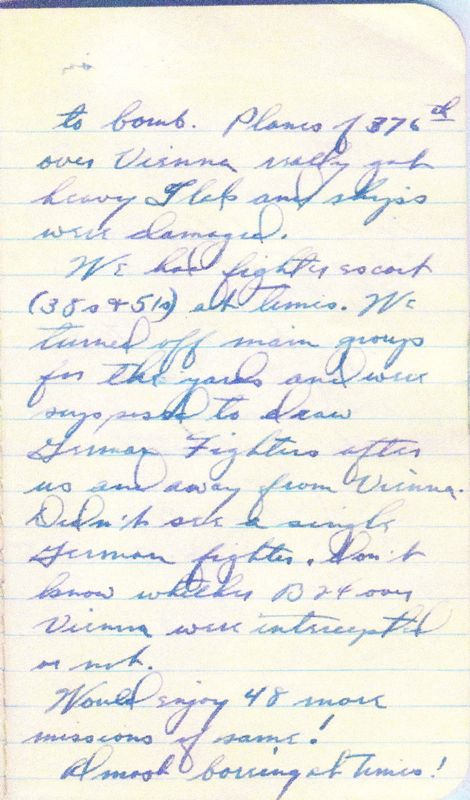 to bomb. Planes of 376th
over Vienna really got
heavy Flak and ships
were damaged.
We had fighter escort
(38s + 51s) at times. We
turned off main groups
for the yards and were
supposed to draw
German Fighters after
us and away from Vienna.
Didn't see a single
German fighter. Don't
know whether B24 over
Vienna were intercepted
or not.
Would enjoy 48 more
missions of same!
Almost boring at times!